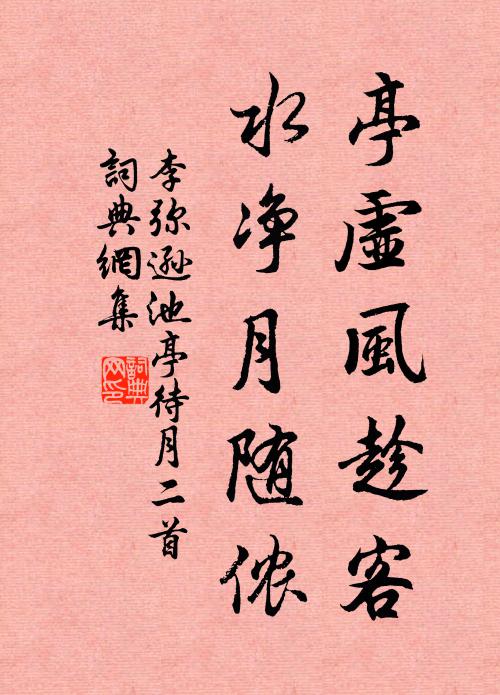 亭虛風趁客
水净月随侬
李弥遜池亭待月二首
詞典網集
詞典網印